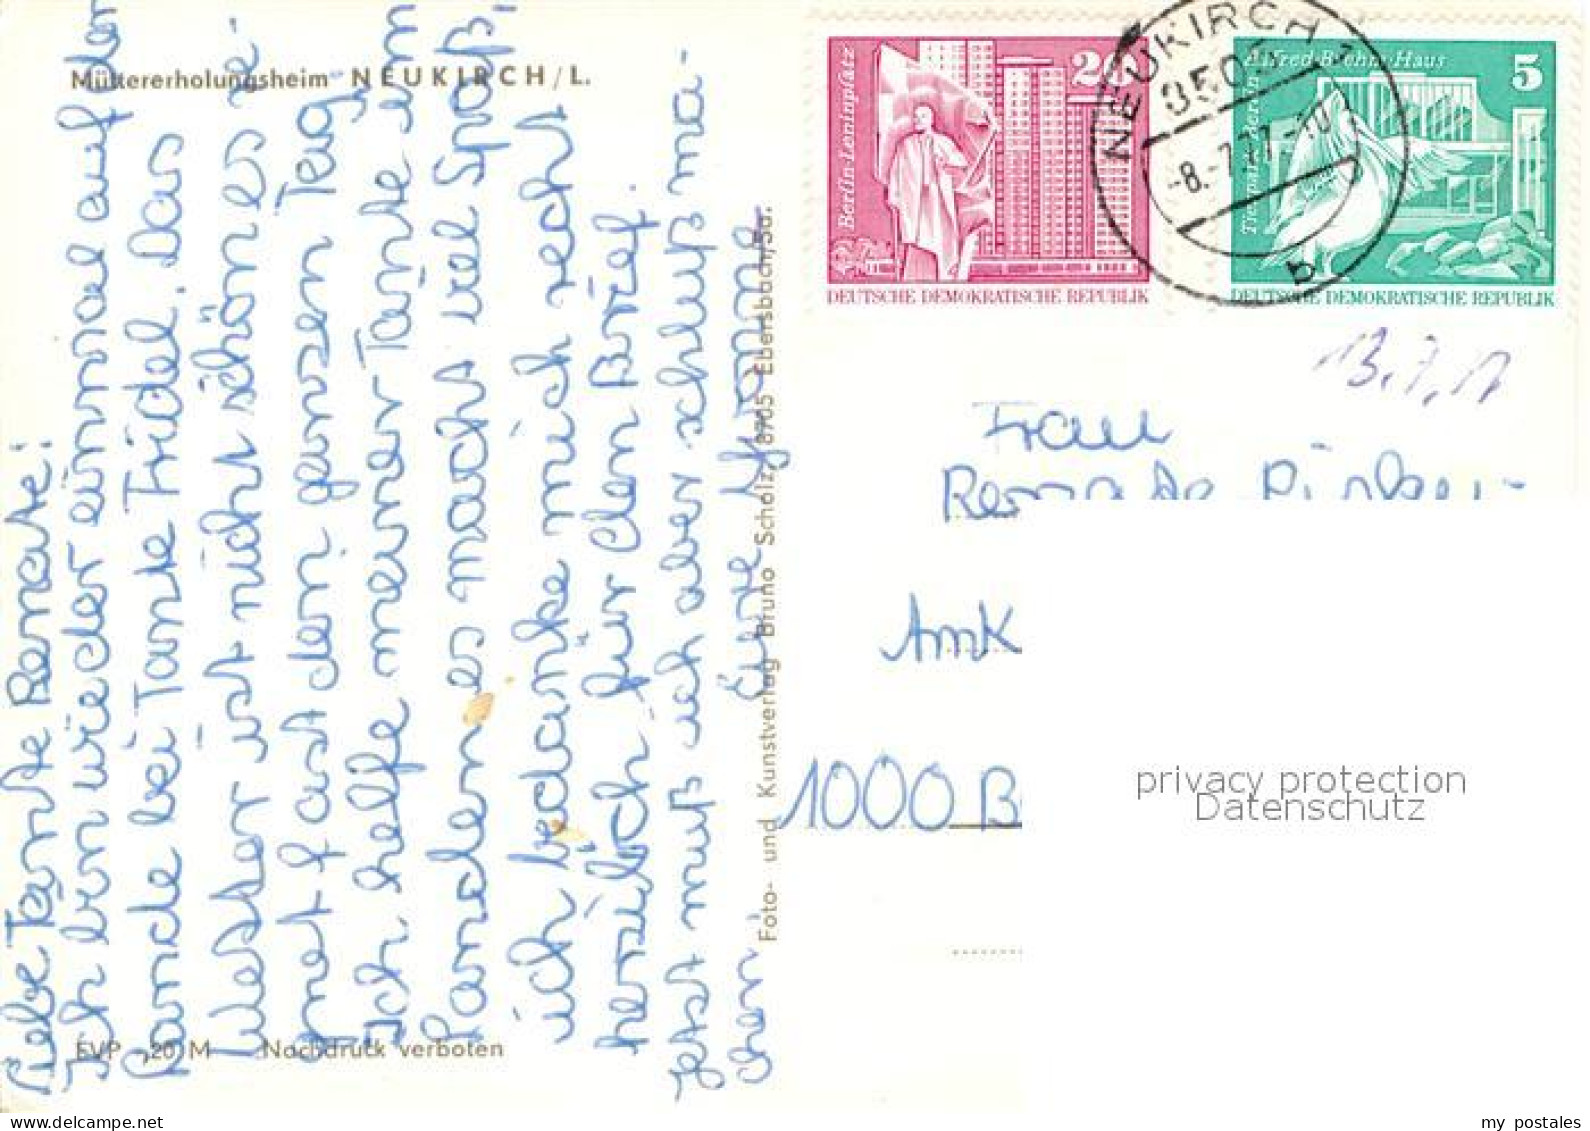 Müttererholungsheim NEUKIRCH/L.
Liebe Tante Renate!
Ich bin wieder einmal auf dem
Lande bei Tante Friedel. Das
Wetter ist nicht schön es re-
gnet fast den ganzen Tag.
Ich helfe meiner Tante im
Landen es macht viel Spaß,
ich bedanke mich recht
herzlich für den Brief.
Jetzt muß ich aber schluß ma-
chen,
Eure
EVP -,20 M Nachdruck verboten
Foto- und Kunstverlag Bruno Scholz, 8705 Ebersbach/Sa.
20
Berlin-Leninplatz
DEUTSCHE DEMOKRATISCHE REPUBLIK
5
Tierpark Berlin, Alfred-Brehm-Haus
DEUTSCHE DEMOKRATISCHE REPUBLIK
NEUKIRCH 1
8.-7.77.-10
b
13.7.77
Frau
Renate
AmK
1000 B
privacy protection
Datenschutz
my postales